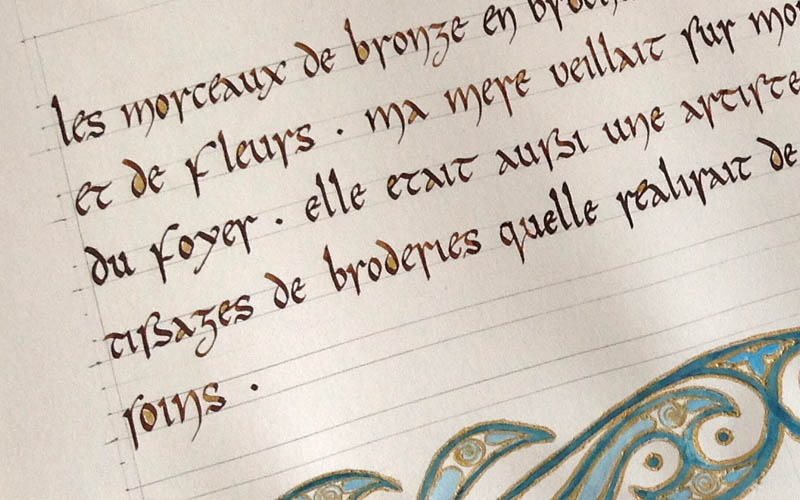 les morceaux de bronze en
et de fleurs . ma mere veillait sur
du foyer . elle etait aussi une artiste
tissages de broderies quelle realisait de
soins .